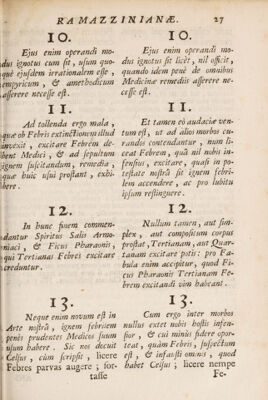 RAMAZZINIANÆ. 27
10.
Ejus enim operandi mo-
dus ignotus cum sit, usum quo-
què ejusdem irrationalem esse,
empyricum, & amethodicum
asserere necesse est.
11.
Ad tollenda ergo mala,
quæ ob Febris extinctionem illud
invexit, excitare Febrem de-
bent Medici, & ad sepultum
ignem suscitandum, remedia,
quæ huic usui prostant, exhi-
bere.
12.
In hunc finem commen-
dantur Spiritus Salis Armo-
niaci, & Ficus Pharaonis,
qui Tertianas Febres excitare
creduntur.
13.
Neque enim novum est in
Arte nostra, ignem febrilem
penès prudentes Medicos suum
usum habere. Sic nos docuit
Celsus, cùm scripsit, licere
Febres parvas augere; for-
tasse
10.
Ejus enim operandi mo-
dus ignotus sit licèt, nil officit,
quando idem penè de omnibus
Medicinæ remediis asserere ne-
cesse est.
11.
Et tamen eò audaciæ ven-
tum est, ut ad alios morbos cu-
randos contendantur, num li-
ceat Febrem, quâ nil nobis in-
fensius, excitare, quasi in po-
testate nostrâ sit ignem febri-
lem accendere, ac pro lubitu
ipsum restinguere.
12.
Nullum tamen, aut sim-
plex, aut compositum corpus
prostat, Tertianam, aut Quar-
tanam excitare potis: pro Fa-
bula enim accipitur, quod Fi-
cus Pharaonis Tertianam Fe-
brem excitandi vim habeant.
13.
Cum ergo inter morbos
nullus extet nobis hostis infen-
sior, & cui minùs fidere opor-
teat, quàm Febris, suspectum
est, & infausti ominis, quod
habet Celsus; licere nempe
Fe-